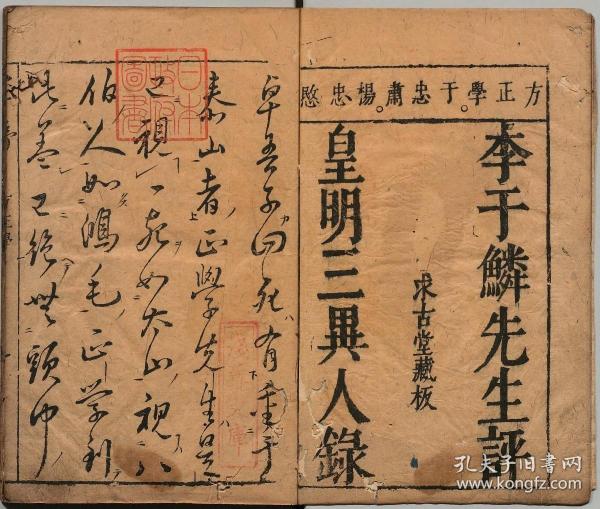 方正學。于忠肅。楊忠愍
李于鱗先生評
求古堂藏板
皇明三異人錄
卓吾子曰死有重于
泰山者正學先生是
已視一死如太山視八
伯人如鴻毛正学到
此盖已絕無頭巾
日本
政府
圖書
孔夫子旧書网
www.kongfz.com